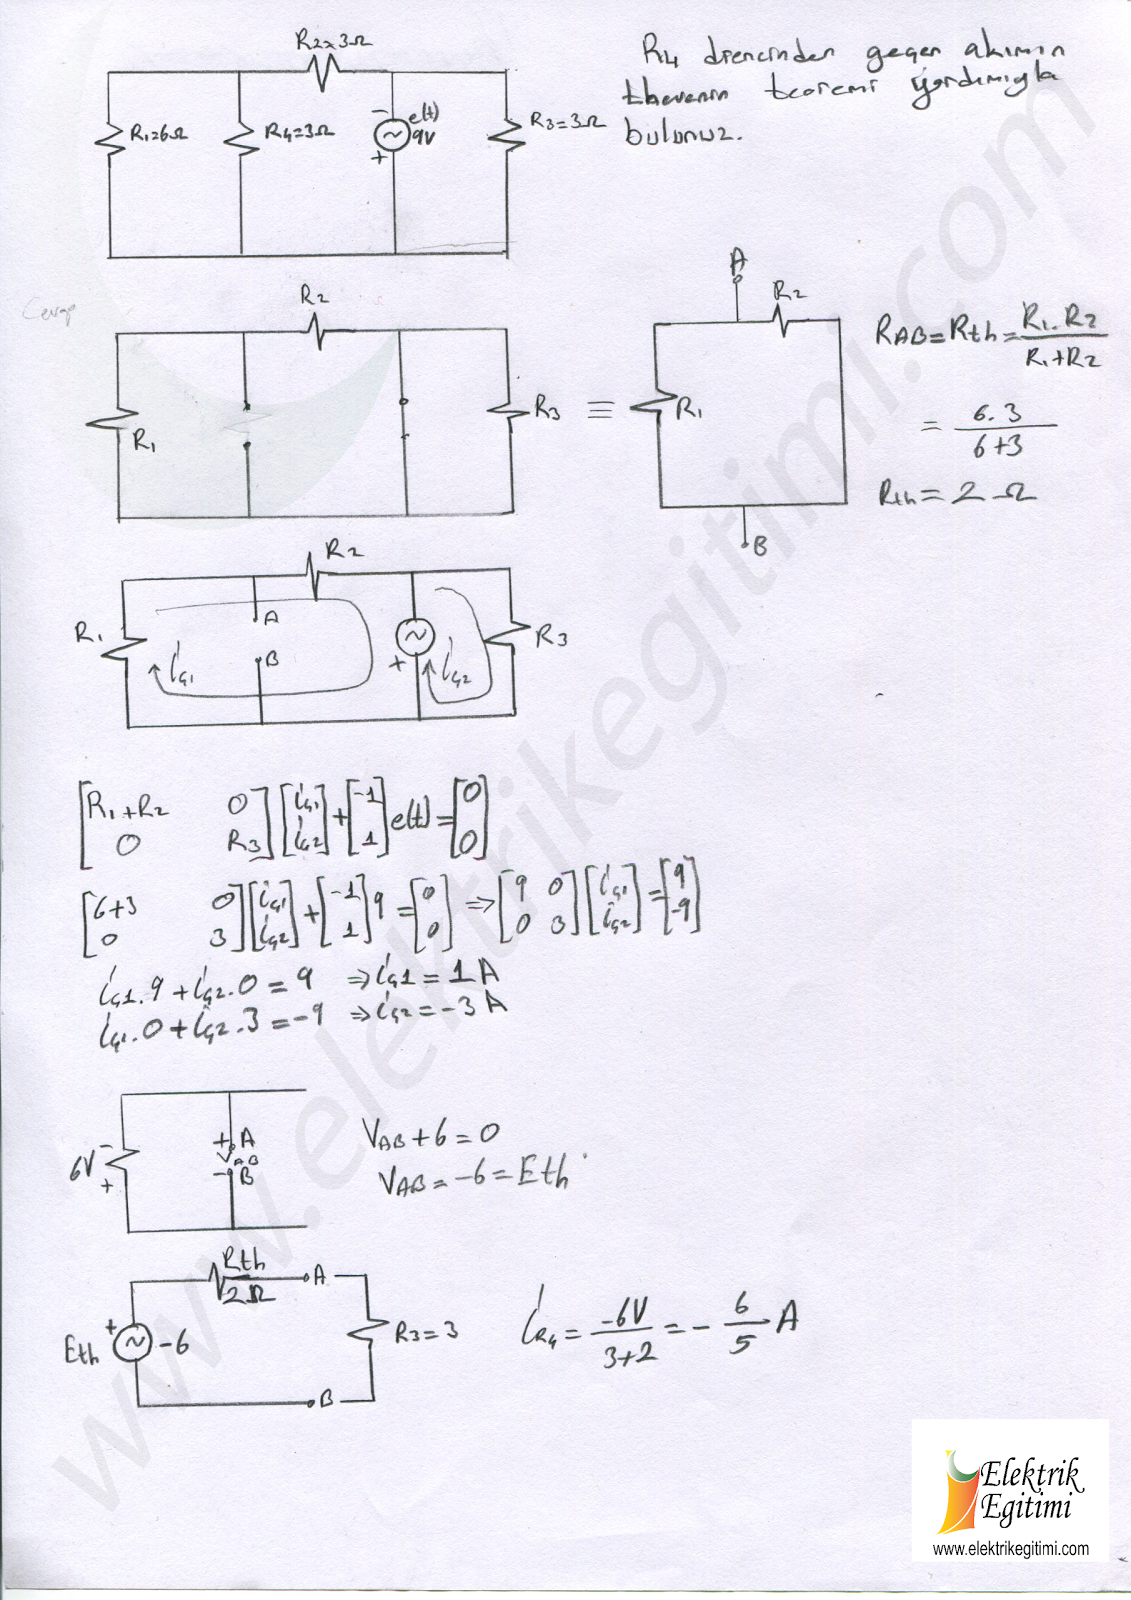 R2=3Ω
R1=6Ω
R4=3Ω
-
e(t)
9V
+
R3=3Ω
R4 direncinden geçen akımın
thevenin teoremi yardımıyla
bulunuz.
Cevap
R2
R1
R3
≡
A
R2
R1
B
RAB=Rth=R1.R2/R1+R2
= 6.3/6+3
Rth=2Ω
R2
R1
A
B
İç1
+
İç2
R3
[R1+R2 0] [İç1] + [-1] e(t) = [0]
[0 R3] [İç2] [1] [0]
[6+3 0] [İç1] + [-1] 9 = [0] ⇒ [9 0] [İç1] = [9]
[0 3] [İç2] [1] [0] [0 3] [İç2] [-9]
İç1.9+İç2.0=9 ⇒İç1=1A
İç1.0+İç2.3=-9 ⇒İç2=-3A
6V
-
+
+ A
VAB
- B
VAB+6=0
VAB=-6=Eth
Rth
2Ω
A
Eth
+
-6
R3=3
B
İR4= -6V/3+2 = - 6/5 A
Elektrik
Egitimi
www.elektrikegitimi.com
www.elektrikegitimi.com